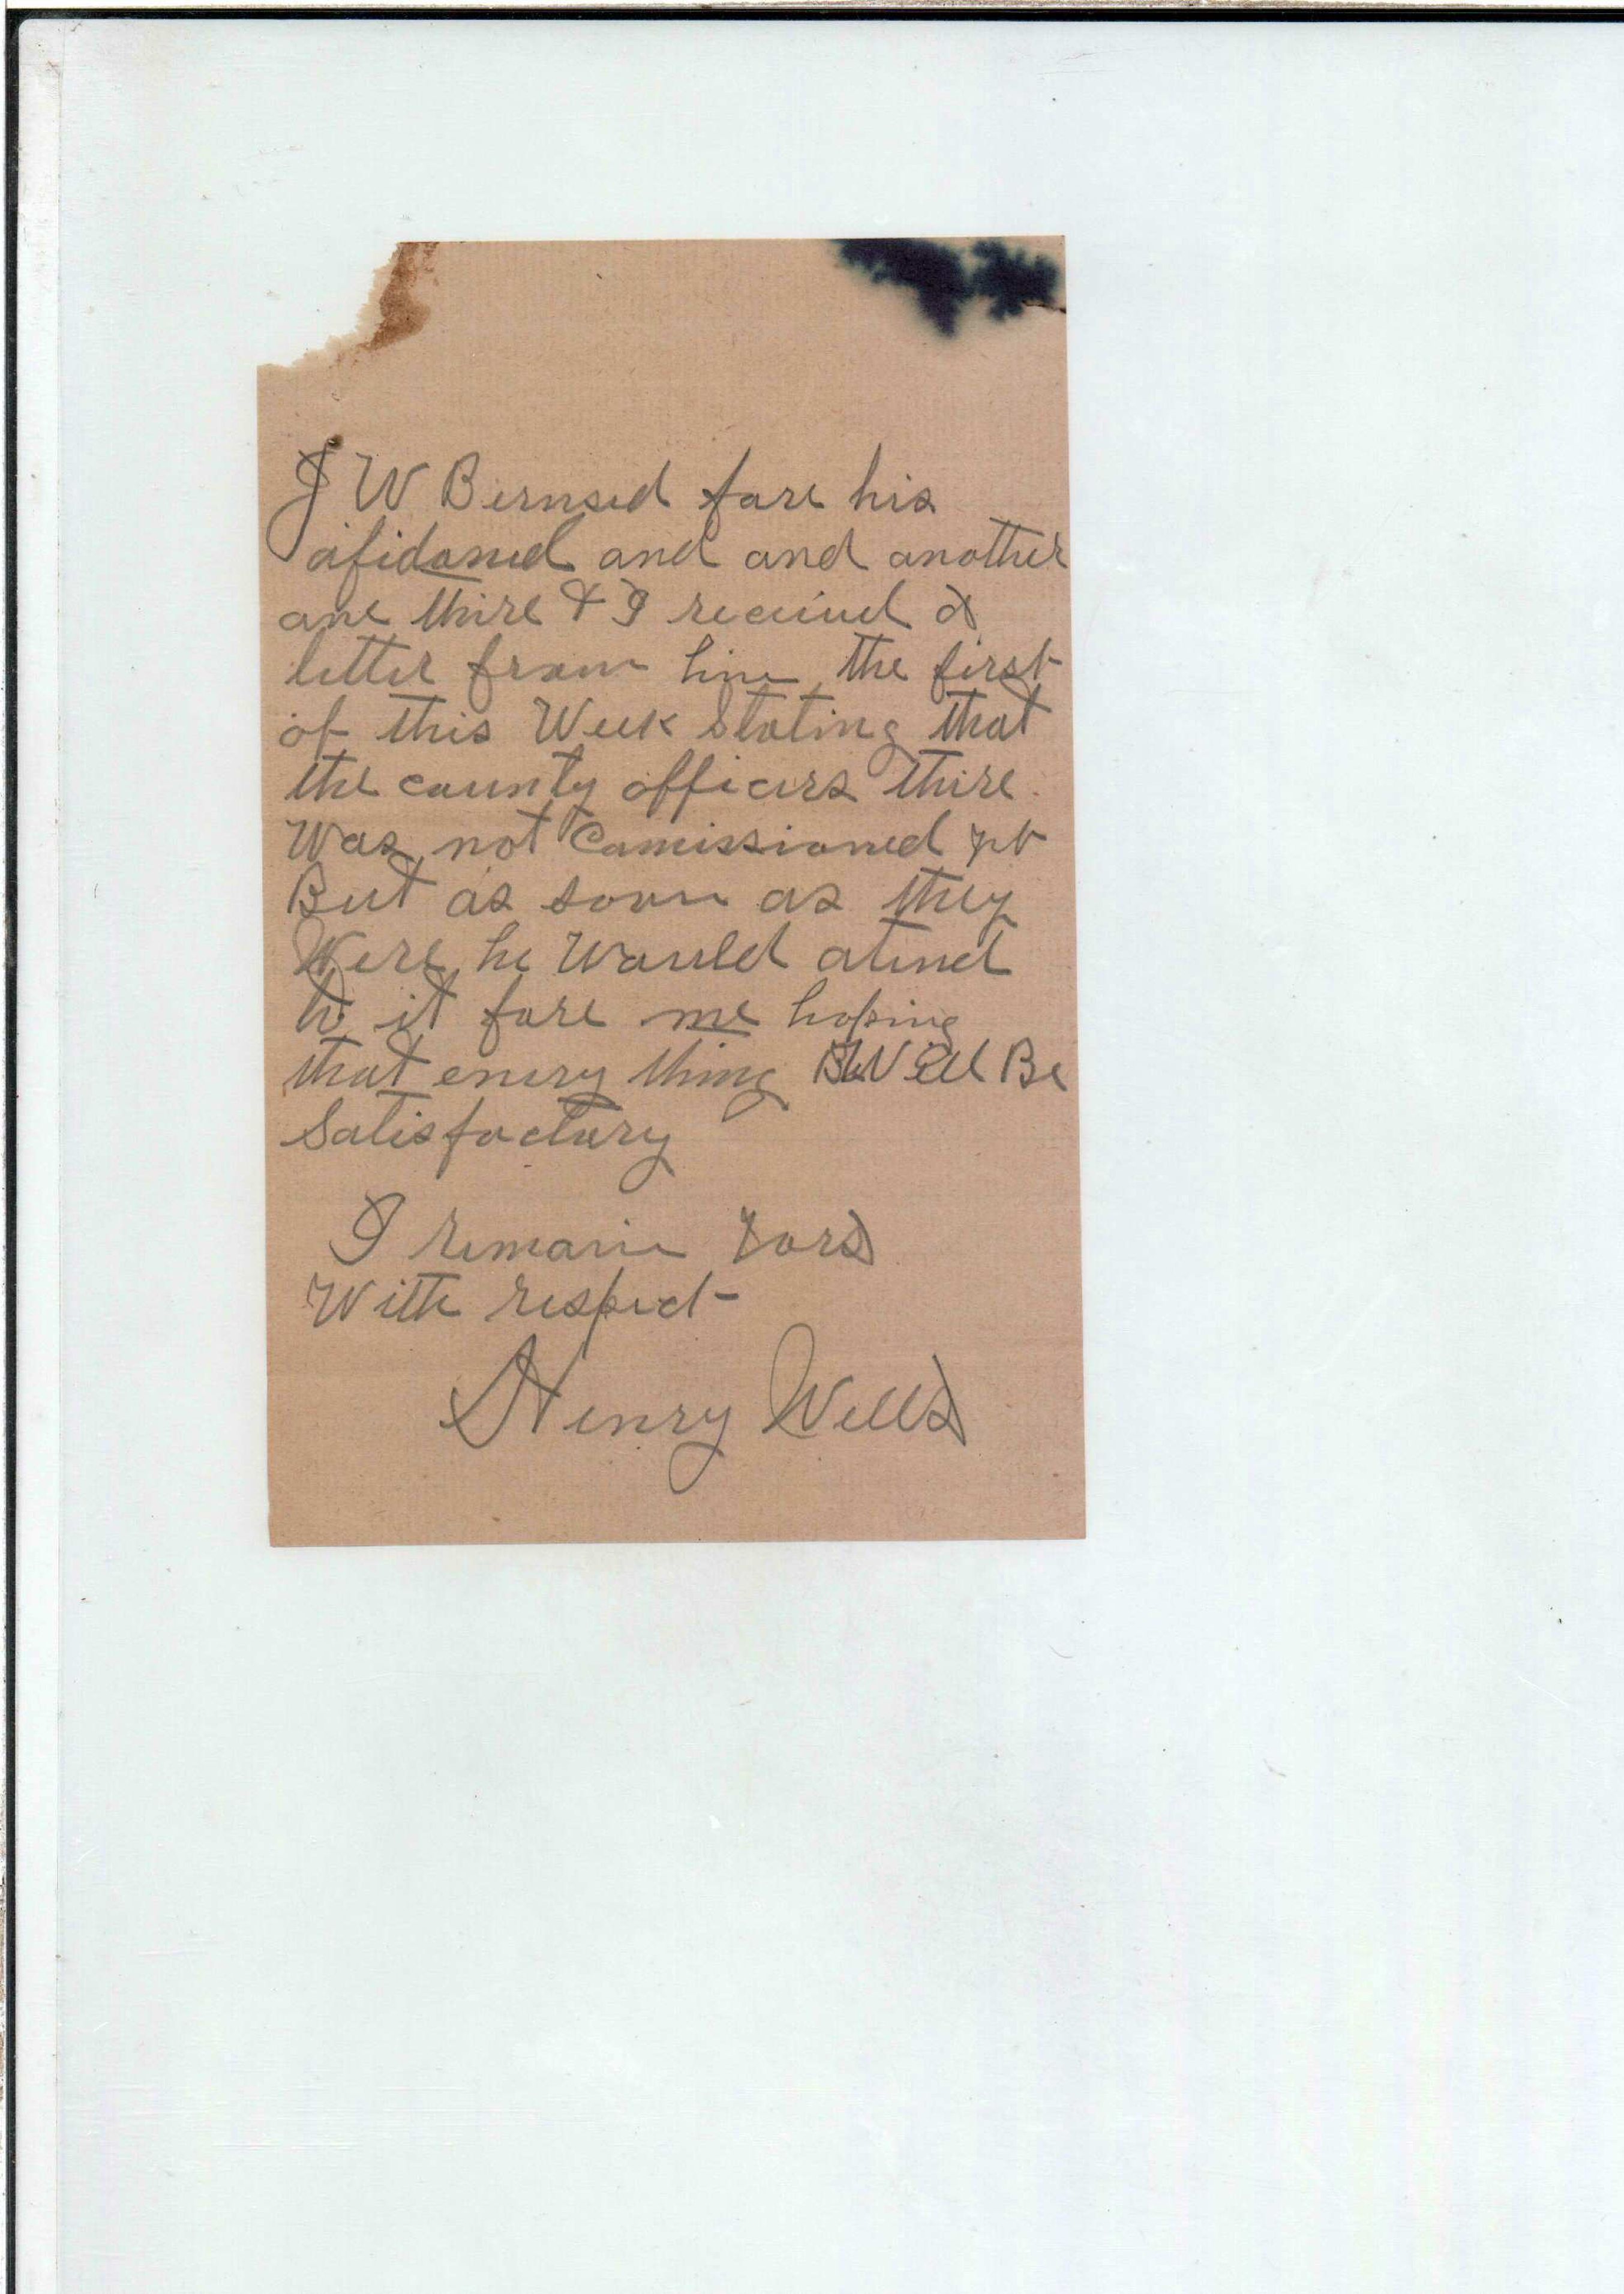 J W Bernsed fore his
afidaved and and another
one thire & I recived a
letter from him the first
of this Week Stating that
the county officers thire
Was not Comissioned yet
But as soon as they
Were he Would atend
to it fore me hoping
that every thing Will Be
Satisfactory
I remain Yors
With respect
Henry Wells